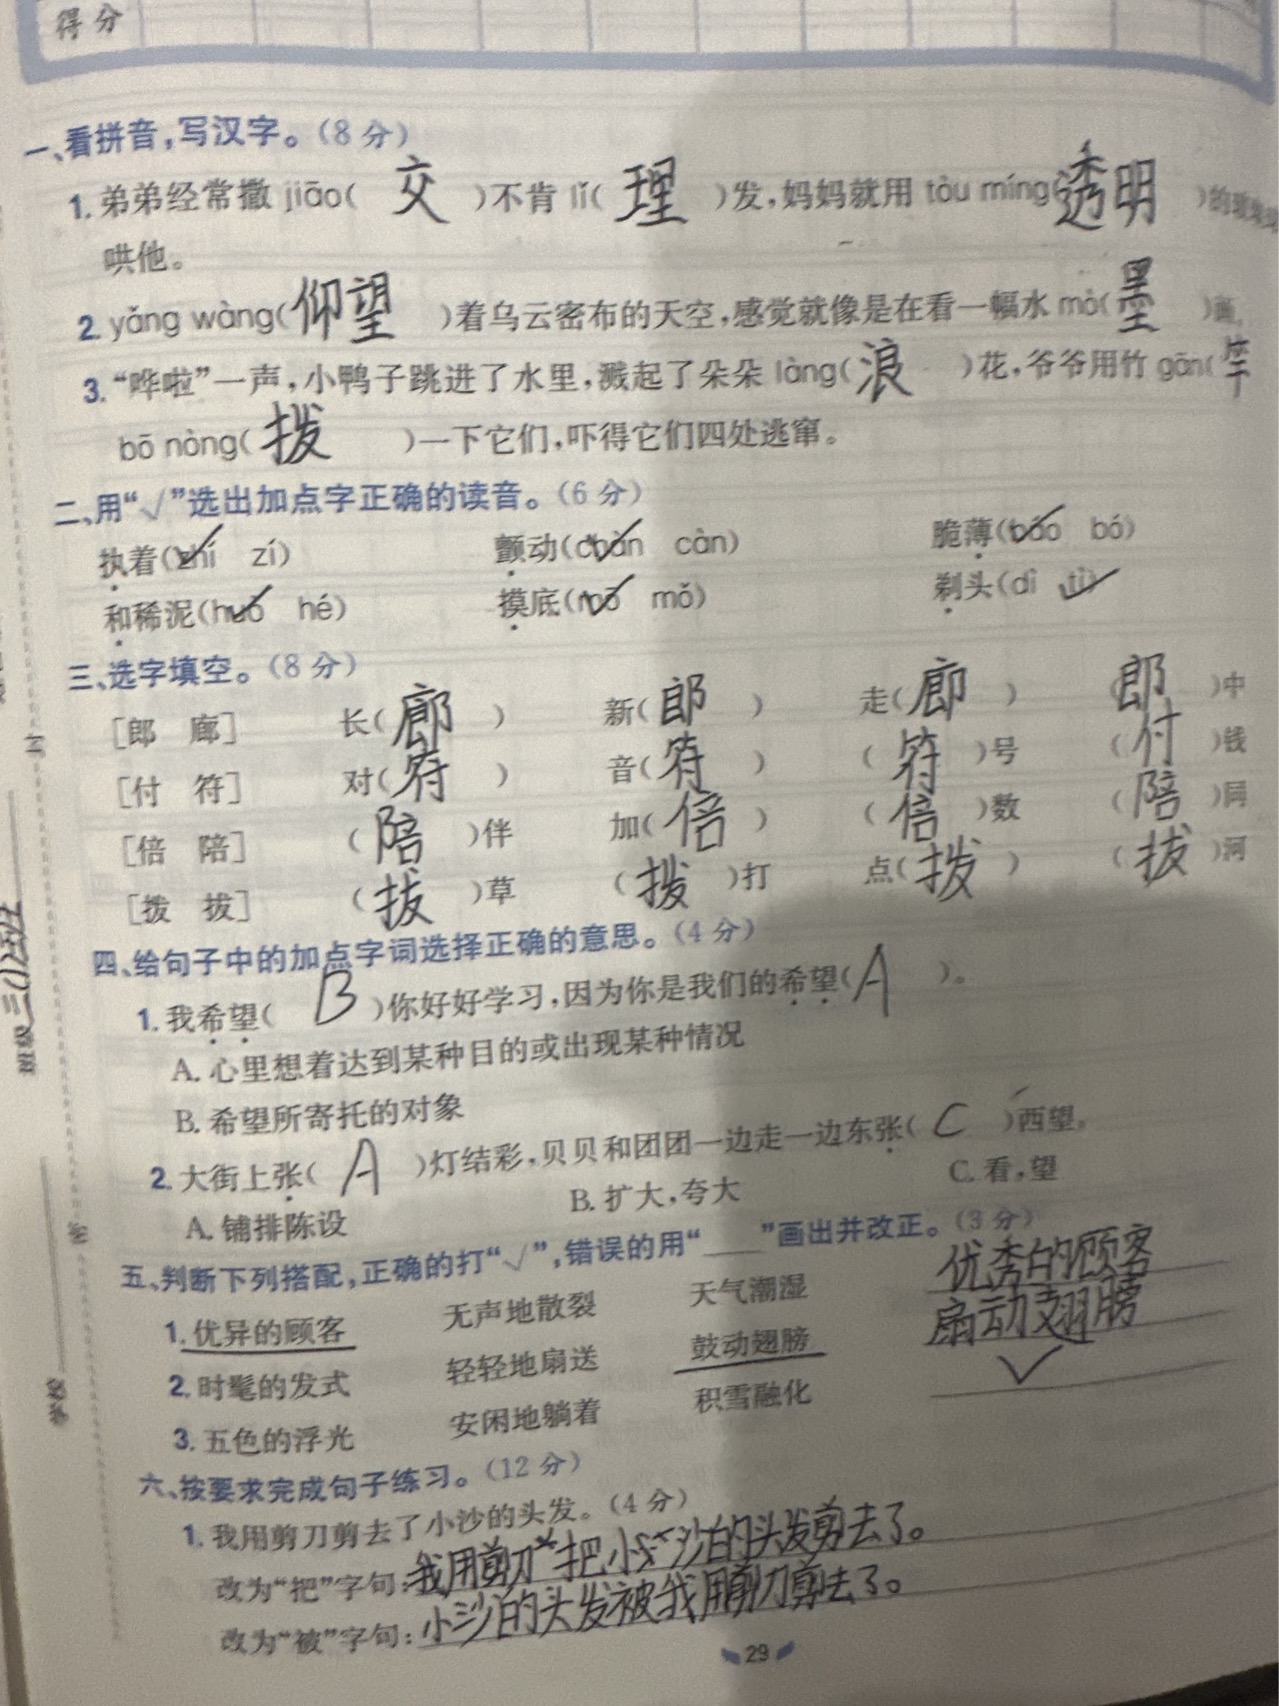 得分
一、看拼音，写汉字。（8分）
1. 弟弟经常撒 jiāo（交）不肯 lǐ（理）发，妈妈就用 tòu míng（透明）的
哄他。
2. yǎng wàng（仰望）着乌云密布的天空，感觉就像是在看一幅水 mò（墨）画。
3. “哗啦”一声，小鸭子跳进了水里，溅起了朵朵 làng（浪）花，爷爷用竹 gān（竿
bō nòng（拨）一下它们，吓得它们四处逃窜。
二、用“√”选出加点字正确的读音。（6分）
执着（zhí✓ zí） 颤动（chàn✓ càn） 脆薄（báo✓ bó）
和稀泥（huò✓ hé） 摸底（mō✓ mǒ） 剃头（dì tì✓）
三、选字填空。（8分）
［郎 廊］ 长（廊） 新（郎） 走（廊） （郎）中
［付 符］ 对（符） 音（符） （符）号 （付）钱
［倍 陪］ （陪）伴 加（倍） （倍）数 （陪）同
［拨 拔］ （拔）草 （拨）打 点（拨） （拔）河
四、给句子中的加点字词选择正确的意思。（4分）
1. 我希望（B）你好好学习，因为你是我们的希望（A）。
A. 心里想着达到某种目的或出现某种情况
B. 希望所寄托的对象
2. 大街上张（A）灯结彩，贝贝和团团一边走一边东张（C）西望。
A. 铺排陈设 B. 扩大，夸大 C. 看，望
五、判断下列搭配，正确的打“√”，错误的用“____”画出并改正。（3分）
1. 优异的顾客 无声地散裂 天气潮湿 优秀的顾客
2. 时髦的发式 轻轻地扇送 鼓动翅膀 扇动翅膀
3. 五色的浮光 安闲地躺着 积雪融化 ✓
六、按要求完成句子练习。（12分）
1. 我用剪刀剪去了小沙的头发。（4分）
改为“把”字句：我用剪刀把小沙的头发剪去了。
改为“被”字句：小沙的头发被我用剪刀剪去了。
29
班级 三(1)班
学校
密
封